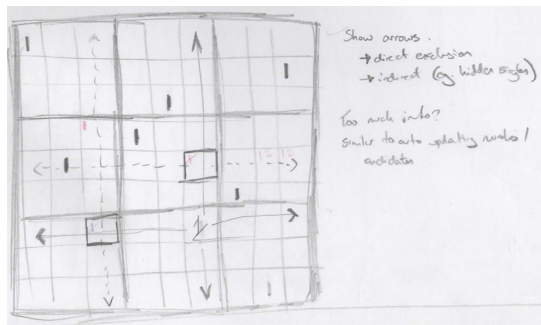 Show arrows.
→ direct exclusion
→ indirect (eg. hidden singles)
Too much info?
Similar to auto updating numbers/
candidates
1
1
1
1
1
1
1
1